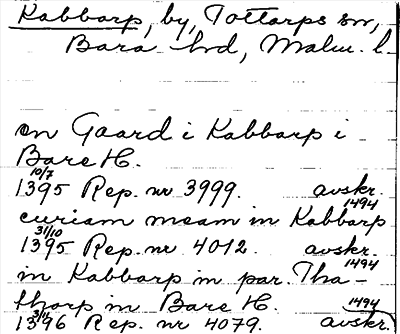 Kabbarp, by, Tottarps sn,
Bara hd, Malm. l.
en Gaard i Kabbarp i
Bare H.
10/7
1395 Rep. nr 3999. avskr.
1494
curiam meam in Kabbarp
31/10
1395 Rep. nr 4012. avskr.
1494
in Kabbarp in par. Tha-
thorp in Bare H.
1494
3/11
1396 Rep. nr 4079. avskr.